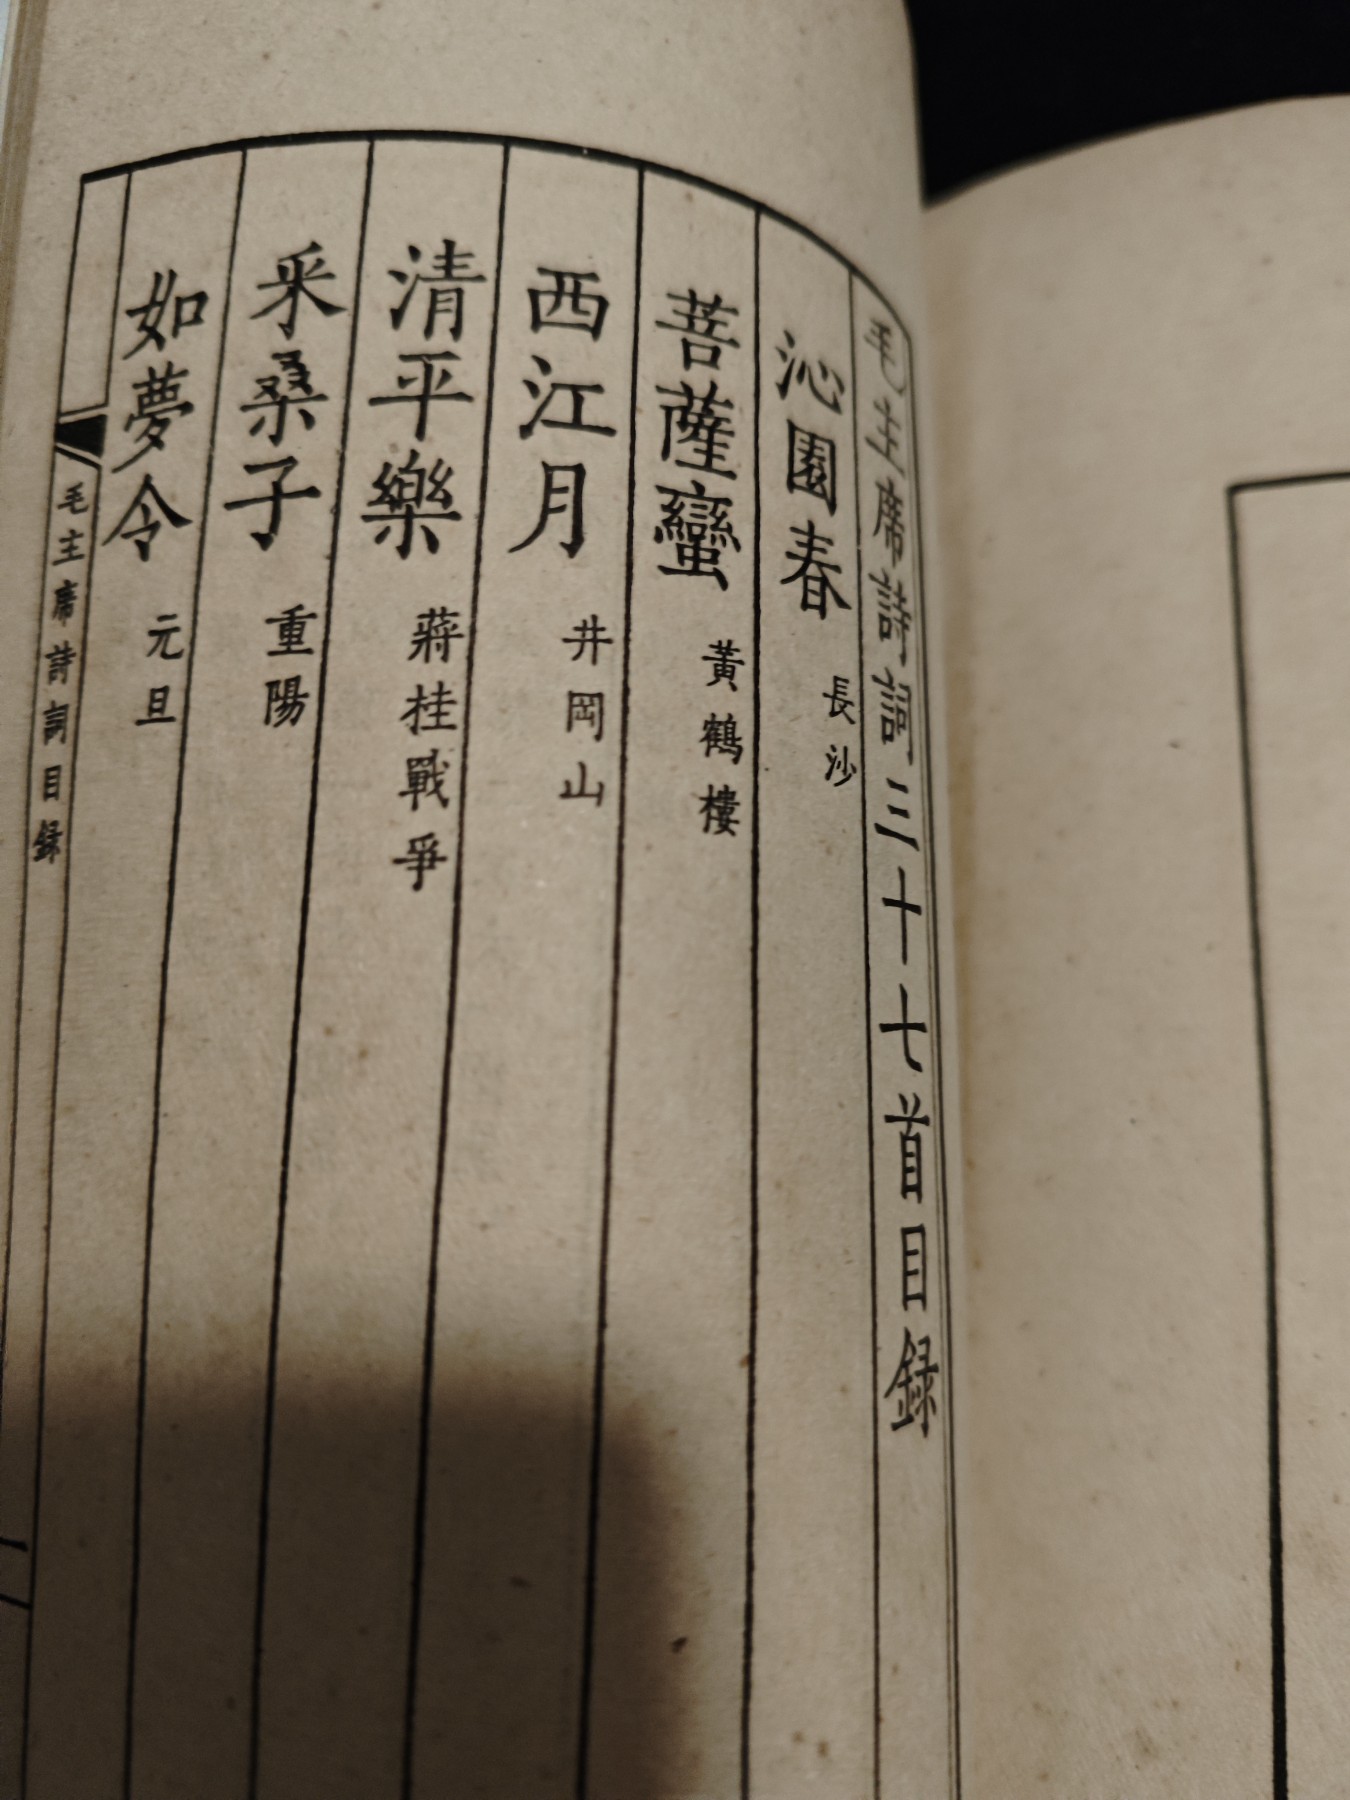 毛主席詩詞三十七首目録
沁園春 長沙
菩薩蠻 黃鶴樓
西江月 井岡山
清平樂 蔣桂戰爭
采桑子 重陽
如夢令 元旦
毛主席詩詞目録